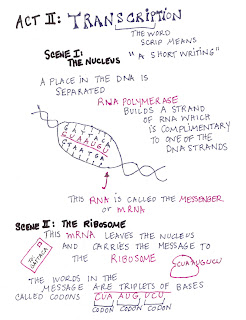 ACT II: TRANSCRIPTION
THE WORD
SCRIP MEANS
"A SHORT WRITING"
SCENE I:
THE NUCLEUS
A PLACE IN THE DNA IS
SEPARATED
RNA POLYMERASE
BUILDS A STRAND
OF RNA WHICH
IS COMPLIMENTARY
TO ONE OF THE
DNA STRANDS
CUAAUGU
CTAATGA
THIS RNA IS CALLED THE MESSENGER
OR MRNA
SCENE II: THE RIBOSOME
THIS MRNA LEAVES THE NUCLEUS
AND CARRIES THE MESSAGE TO
THE RIBOSOME
GATTACA
CUAAUGUCU
THE WORDS IN THE
MESSAGE ARE TRIPLETS OF BASES
CALLED CODONS CUA AUG UCU
CODON CODON CODON